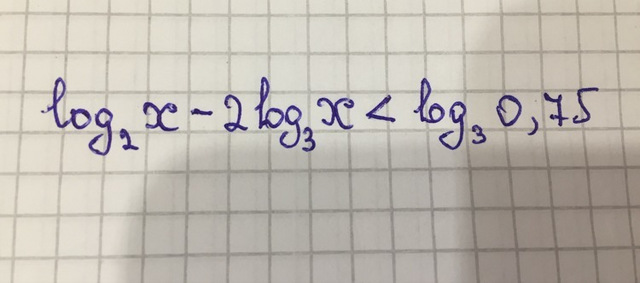 log₂ x - 2 log₃ x < log₃ 0,75